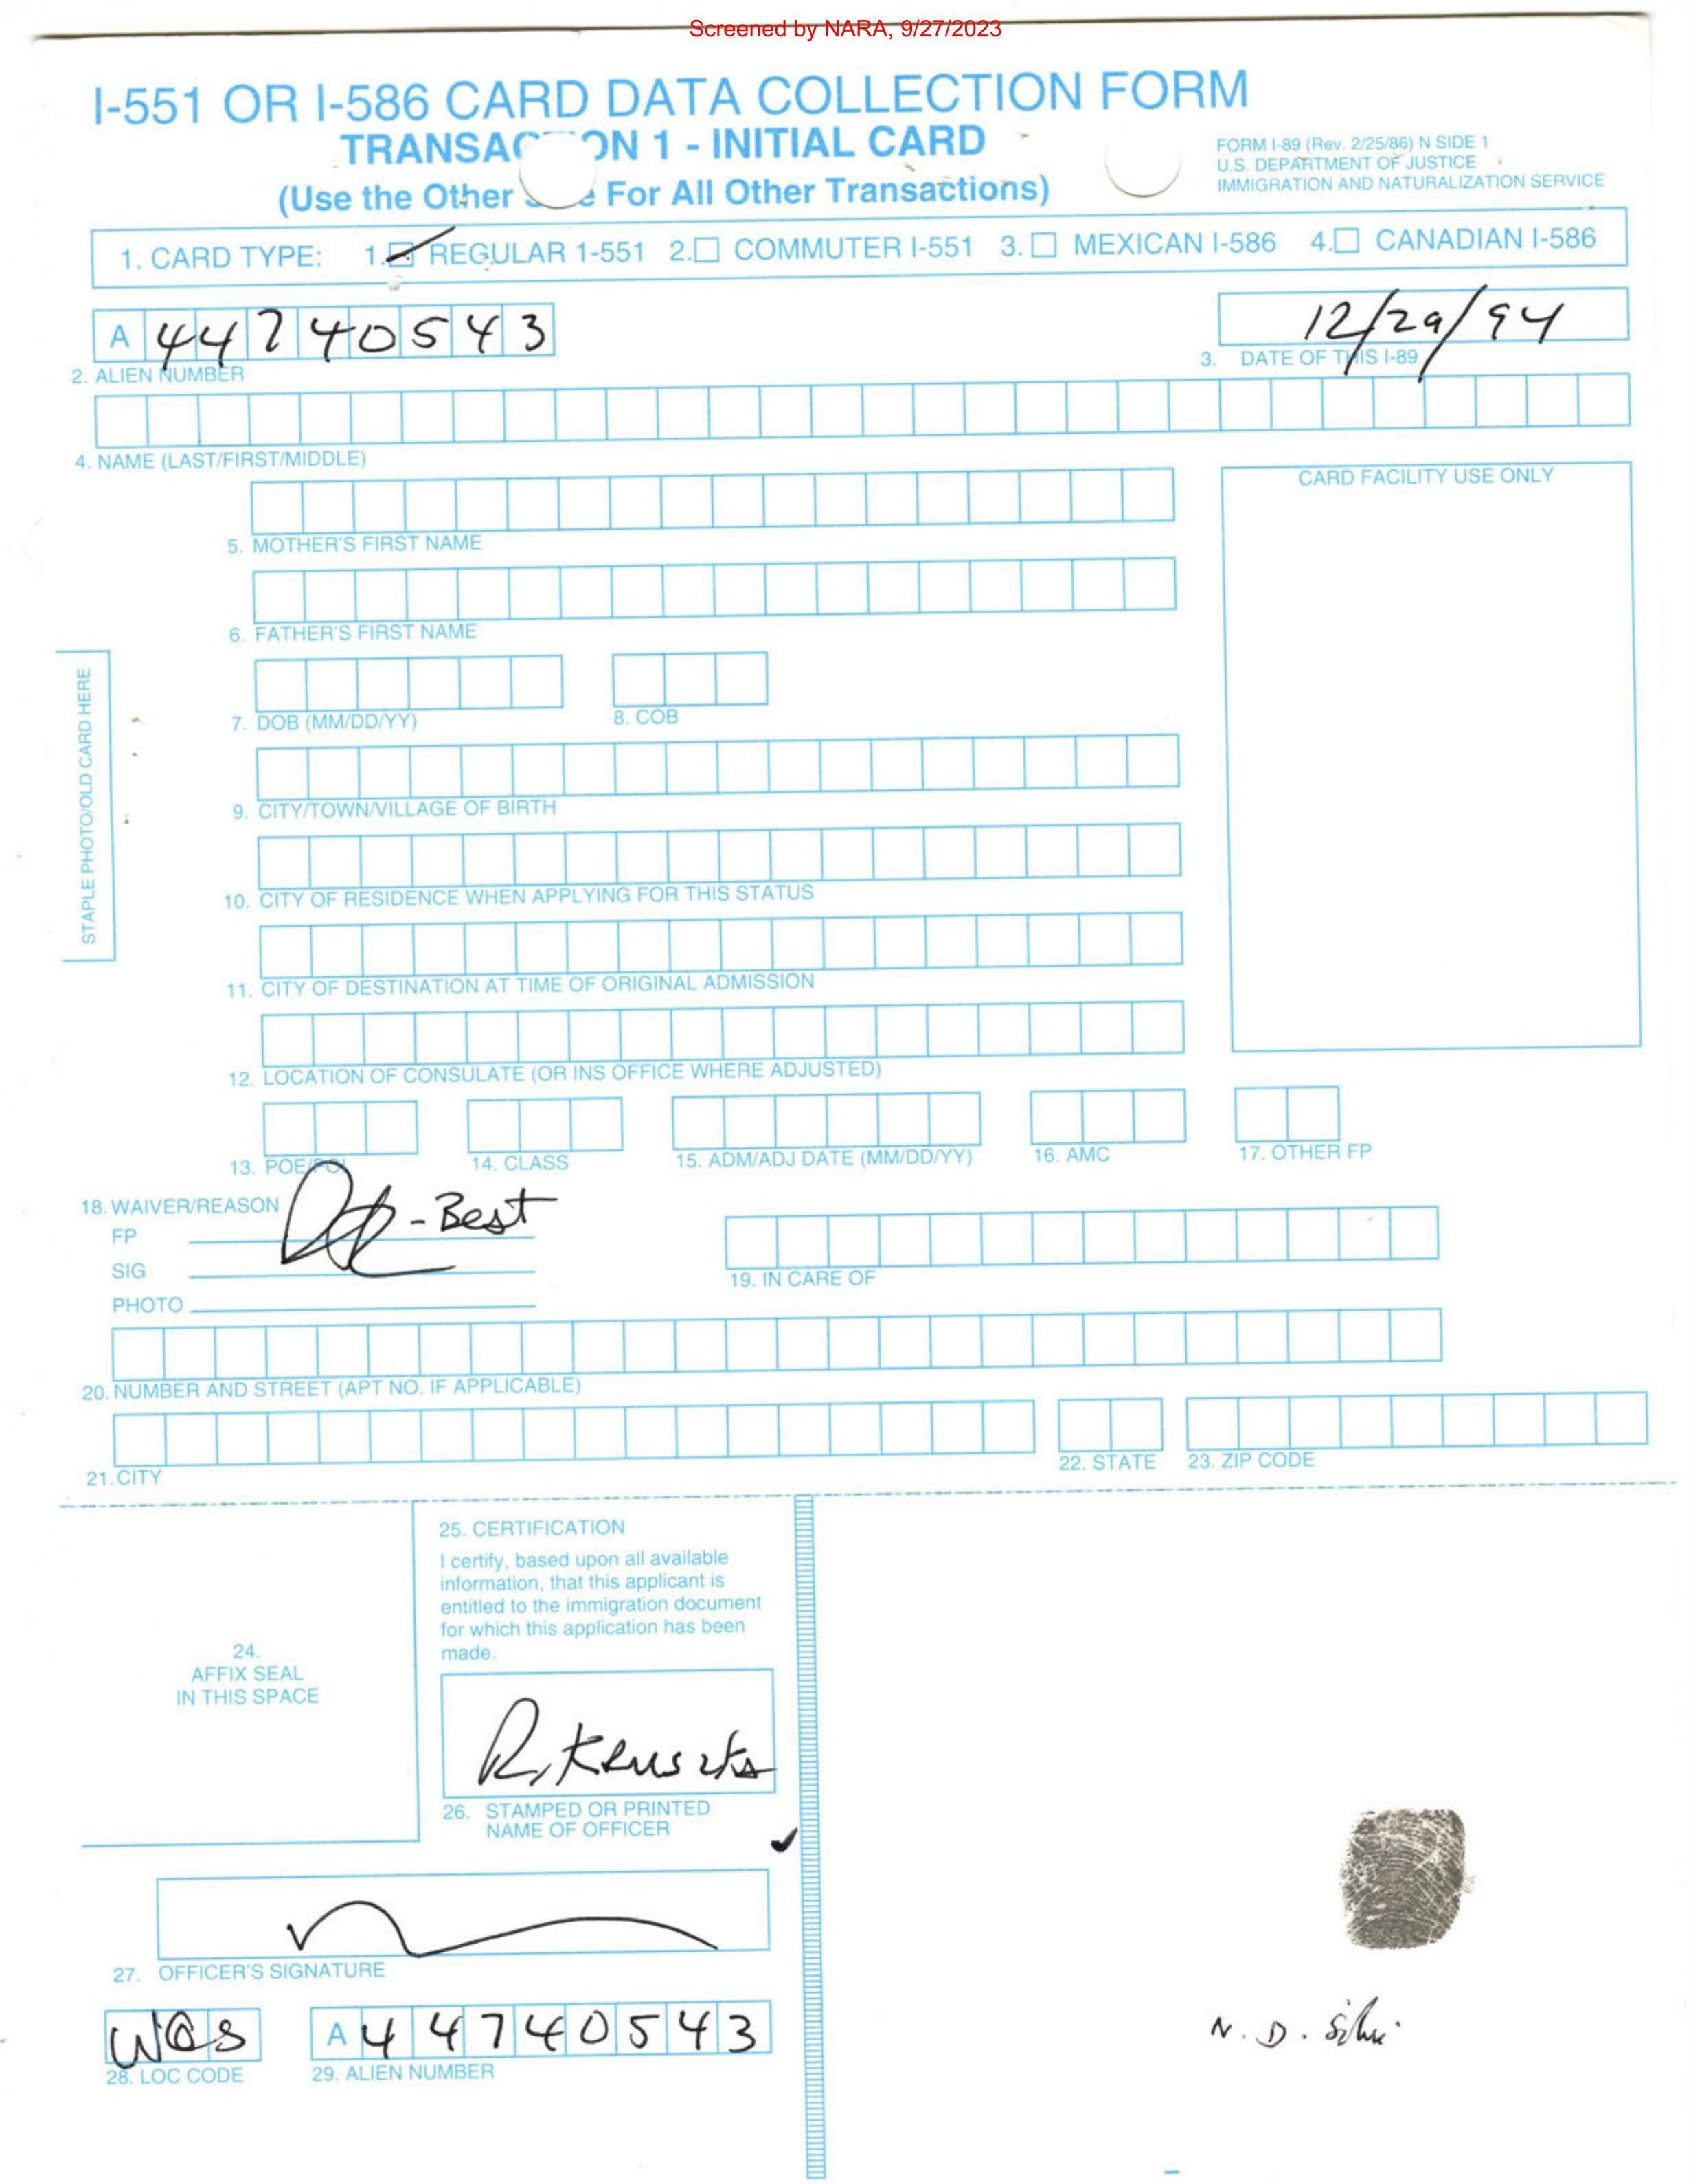 Screened by NARA, 9/27/2023
I-551 OR I-586 CARD DATA COLLECTION FORM
TRANSAC ON 1 - INITIAL CARD
(Use the Other For All Other Transactions)
FORM I-89 (Rev. 2/25/86) N SIDE 1
U.S. DEPARTMENT OF JUSTICE
IMMIGRATION AND NATURALIZATION SERVICE
1. CARD TYPE: 1. REGULAR 1-551 2. COMMUTER I-551 3. MEXICAN I-586 4. CANADIAN I-586
A 44740543
12/29/94
2. ALIEN NUMBER
3. DATE OF THIS I-89
4. NAME (LAST/FIRST/MIDDLE)
CARD FACILITY USE ONLY
5. MOTHER'S FIRST NAME
6. FATHER'S FIRST NAME
STAPLE PHOTO/OLD CARD HERE
7. DOB (MM/DD/YY)
8. COB
9. CITY/TOWN/VILLAGE OF BIRTH
10. CITY OF RESIDENCE WHEN APPLYING FOR THIS STATUS
11. CITY OF DESTINATION AT TIME OF ORIGINAL ADMISSION
12. LOCATION OF CONSULATE (OR INS OFFICE WHERE ADJUSTED)
13. POE/POL
14. CLASS
15. ADM/ADJ DATE (MM/DD/YY)
16. AMC
17. OTHER FP
18. WAIVER/REASON
- Best
FP
SIG
PHOTO
19. IN CARE OF
20. NUMBER AND STREET (APT NO. IF APPLICABLE)
21. CITY
22. STATE
23. ZIP CODE
24.
AFFIX SEAL
IN THIS SPACE
25. CERTIFICATION
I certify, based upon all available
information, that this applicant is
entitled to the immigration document
for which this application has been
made.
26. STAMPED OR PRINTED
NAME OF OFFICER
27. OFFICER'S SIGNATURE
WAS
28. LOC CODE
A 44740543
29. ALIEN NUMBER
N. D. Silva